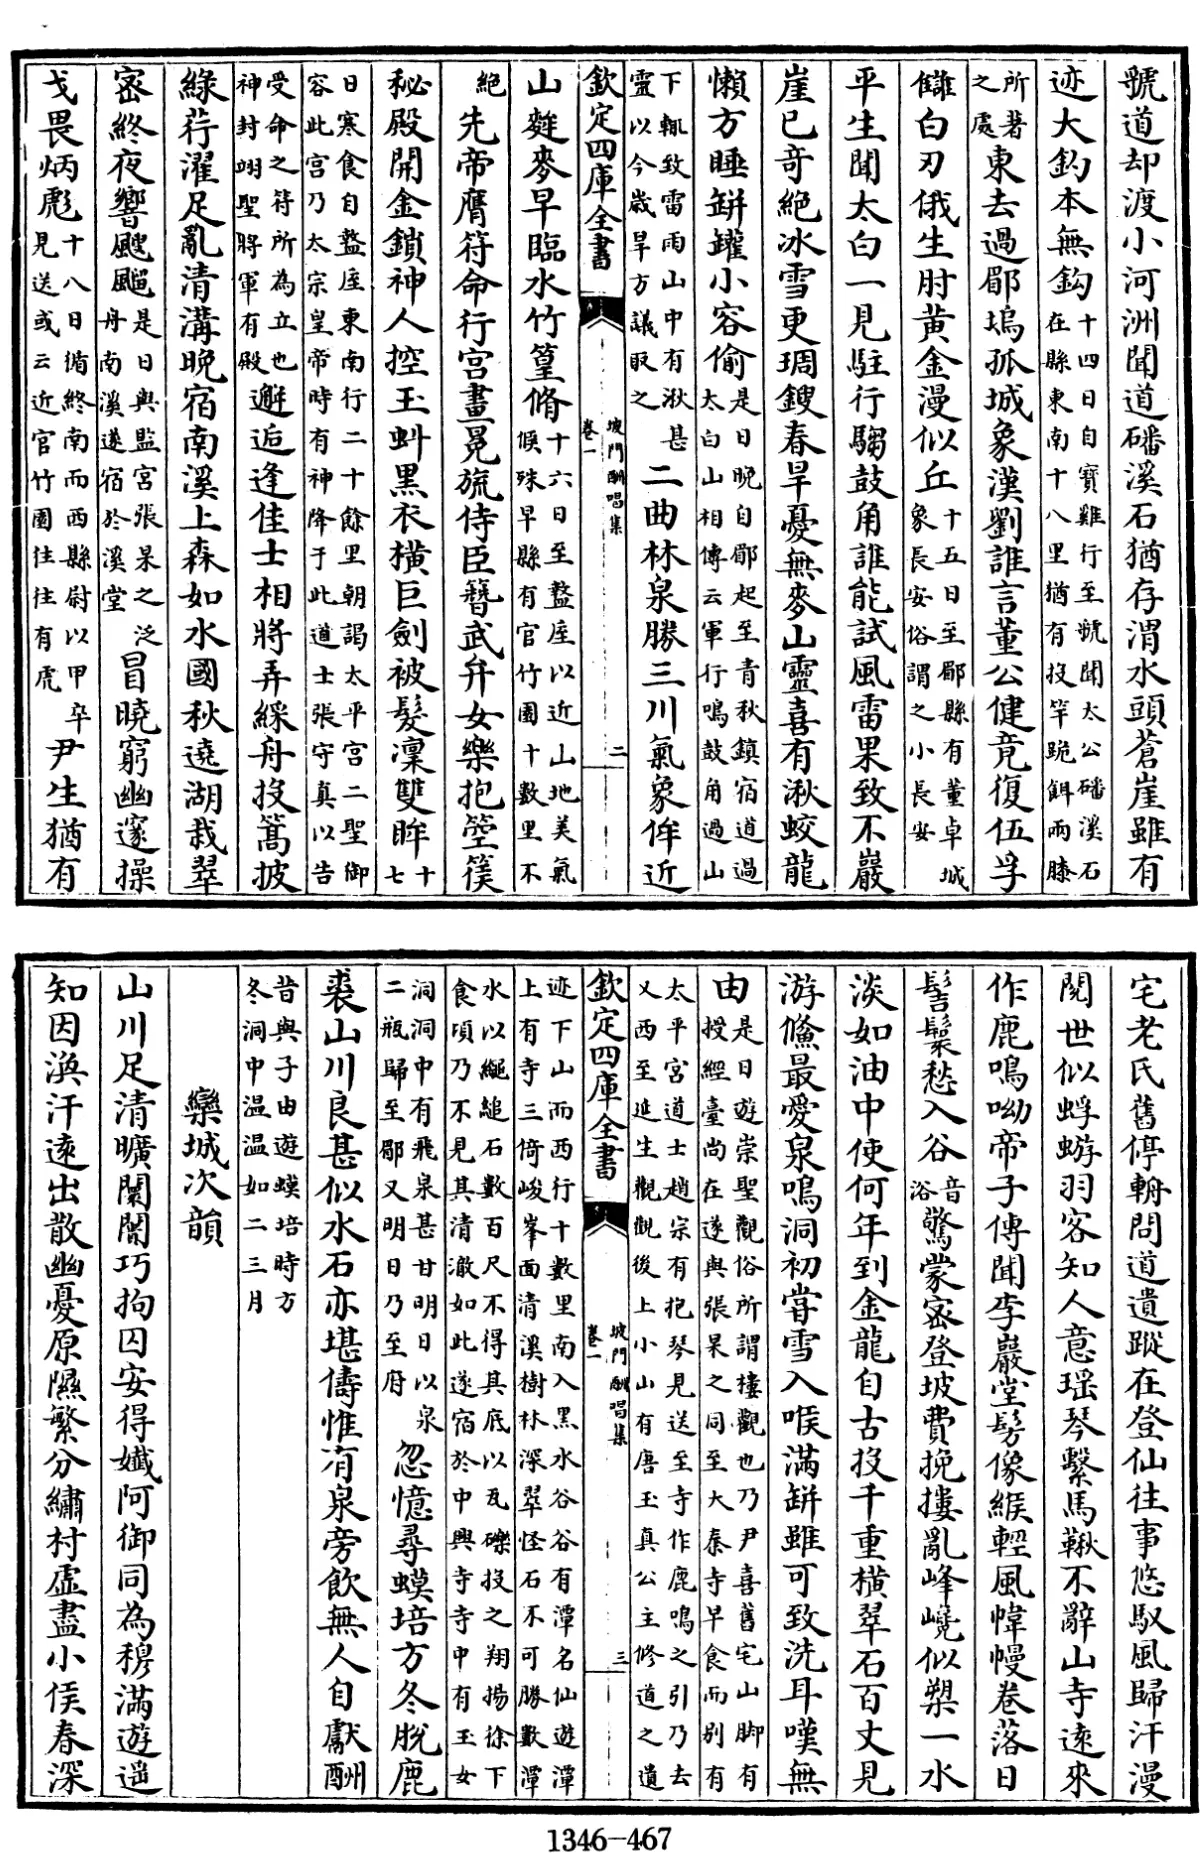 虢道却渡小河洲聞道磻溪石猶存渭水頭蒼崖雖有
迹大釣本無鈎十四日自寶雞行至虢聞太公磻溪石在縣東南十八里猶有投竿跪餌兩膝
所著之處東去過郿塢孤城象漢劉誰言董公健竟復伍孚
讎白刃俄生肘黄金漫似丘十五日至郿縣有董卓城象長安俗謂之小長安
平生聞太白一見駐行騶鼓角誰能試風雷果致不巖
崖已奇絶冰雪更琱鎪春旱憂無麥山靈喜有湫蛟龍
懶方睡缾罐小容偷是日晚自郿起至青秋鎮宿道過太白山相傳云軍行鳴鼓角過山
下輒致雷雨山中有湫甚靈以今歲旱方議取之二曲林泉勝三川氣象侔近
欽定四庫全書 坡門酬唱集 卷一 二
山麰麥早臨水竹篁脩十六日至盩厔以近山地美氣候殊早縣有官竹園十數里不
絶先帝膺符命行宫畫冕旒侍臣簪武弁女樂抱箜篌
秘殿開金鎖神人控玉虯黑衣横巨劍被髮凛雙眸十七
日寒食自盩厔東南行二十餘里朝謁太平宫二聖御容此宫乃太宗皇帝時有神降于此道士張守真以告
受命之符所為立也神封翊聖將軍有殿邂逅逢佳士相將弄綵舟投篙披
綠荇濯足亂清溝晚宿南溪上森如水國秋遶湖栽翠
密終夜響颼飀是日與監宫張杲之泛舟南溪遂宿於溪堂冒曉窮幽邃操
戈畏炳彪十八日循終南而西縣尉以甲卒見送或云近官竹園往往有虎尹生猶有
宅老氏舊停輈問道遺蹤在登仙往事悠馭風歸汗漫
閱世似蜉蝣羽客知人意瑶琴繫馬鞦不辭山寺逺來
作鹿鳴呦帝子傳聞李巖堂髣像緱輕風幃幔卷落日
髻鬟愁入谷音浴驚蒙密登坡費挽摟亂峰巉似槊一水
淡如油中使何年到金龍自古投千重横翠石百丈見
游鯈最愛泉鳴洞初嘗雪入喉滿缾雖可致洗耳嘆無
由是日遊崇聖觀俗所謂樓觀也乃尹喜舊宅山脚有授經臺尚在遂與張杲之同至大秦寺早食而别有
太平宫道士趙宗有抱琴見送至寺作鹿鳴之引乃去又西至延生觀觀後上小山有唐玉真公主修道之遺
欽定四庫全書 坡門酬唱集 卷一 三
迹下山而西行十數里南入黑水谷谷有潭名仙遊潭上有寺三倚峻峯面清溪樹林深翠怪石不可勝數潭
水以繩縋石數百尺不得其底以瓦礫投之翔揚徐下食頃乃不見其清澈如此遂宿於中興寺寺中有玉女
洞洞中有飛泉甚甘明日以泉二瓶歸至郿又明日乃至府忽憶尋蟆培方冬脱鹿
裘山川良甚似水石亦堪儔惟有泉旁飲無人自獻酬
昔與子由遊蟆培時方冬洞中温温如二三月
欒城次韻
山川足清曠闤闠巧拘囚安得孅阿御同為穆滿遊遥
知因渙汗逺出散幽憂原隰繁分繡村虚盡小侯春深
1346-467